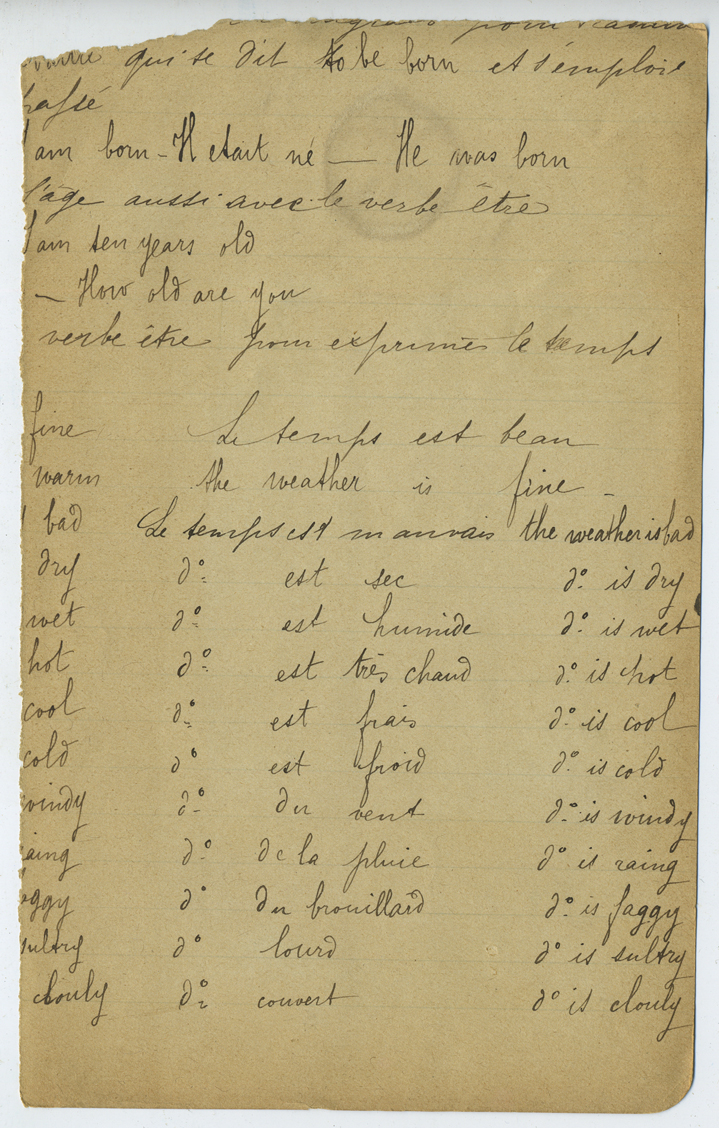 qui se dit to be born et s'emploie
passé
I am born - Il etait né — He was born
l'âge aussi avec le verbe être
I am ten years old
— How old are you
verbe être pour exprimer le temps
fine Le temps est beau
warm the weather is fine -
bad Le temps est mauvais the weather is bad
dry do est sec do is dry
wet do est humide do is wet
hot do est très chaud do is hot
cool do est frais do is cool
cold do est froid do is cold
windy do du vent do is windy
raing do de la pluie do is raing
oggy do du brouillard do is faggy
sultry do lourd do is sultry
clouly do couvert do is clouly